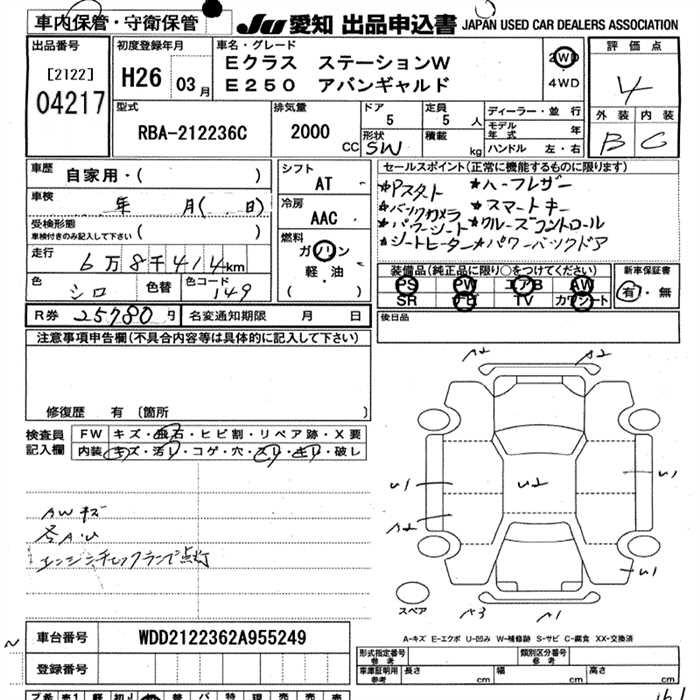 車内保管・守衛保管
JU 愛知 出品申込書 JAPAN USED CAR DEALERS ASSOCIATION
出品番号
[2122]
04217
初度登録年月
H26 03月
車名・グレード
Eクラス ステーションW
E250 アバンギャルド
2WD
4WD
評価点
4
外装 内装
B C
型式
RBA-212236C
排気量
2000 CC
ドア
5
定員
5人
形状
SW
積載
kg
ディーラー・並行
モデル年式 年
ハンドル 左・右
車歴 自家用・( )
車検 年 月( . 日)
受検形態
車検付きのみ記入して下さい ( )
走行 6万8千414km
色 シロ 色替 色コード 149
シフト
AT
冷房
AAC
燃料
ガソリン
軽・油
( )
セールスポイント(正常に機能するものに限ります)
★Pスタート ★ハーフレザー
★バックカメラ ★スマートキー
★パワーシート ★クルーズコントロール
★シートヒーター ★パワーバックドア
装備品(純正品に限り○をつけてください)
PS PW エアB AW
SR ナビ TV カワシート
新車保証書
有・無
R券 25780円 名変通知期限 月 日
後日品
注意事項申告欄(不具合内容等は具体的に記入して下さい)
修復歴 有 〔箇所 〕
検査員記入欄
FW キズ・飛石・ヒビ割・リペア跡・X要
内装 キズ・汚レ・コゲ・穴・スレ・キレ・破レ
AWキズ
各A.U
エンジンチェックランプ点灯
A2 A2
U1 U2 U1
A2
U1
A3 A1
スペア
A-キズ E-エクボ U-凹み W-補修跡 S-サビ C-腐食 XX-交換済
車台番号 WDD2122362A955249
登録番号
形式指定番号
参考
類別区分番号
参考
車庫証明用
参考
長さ cm 幅 cm 高さ cm